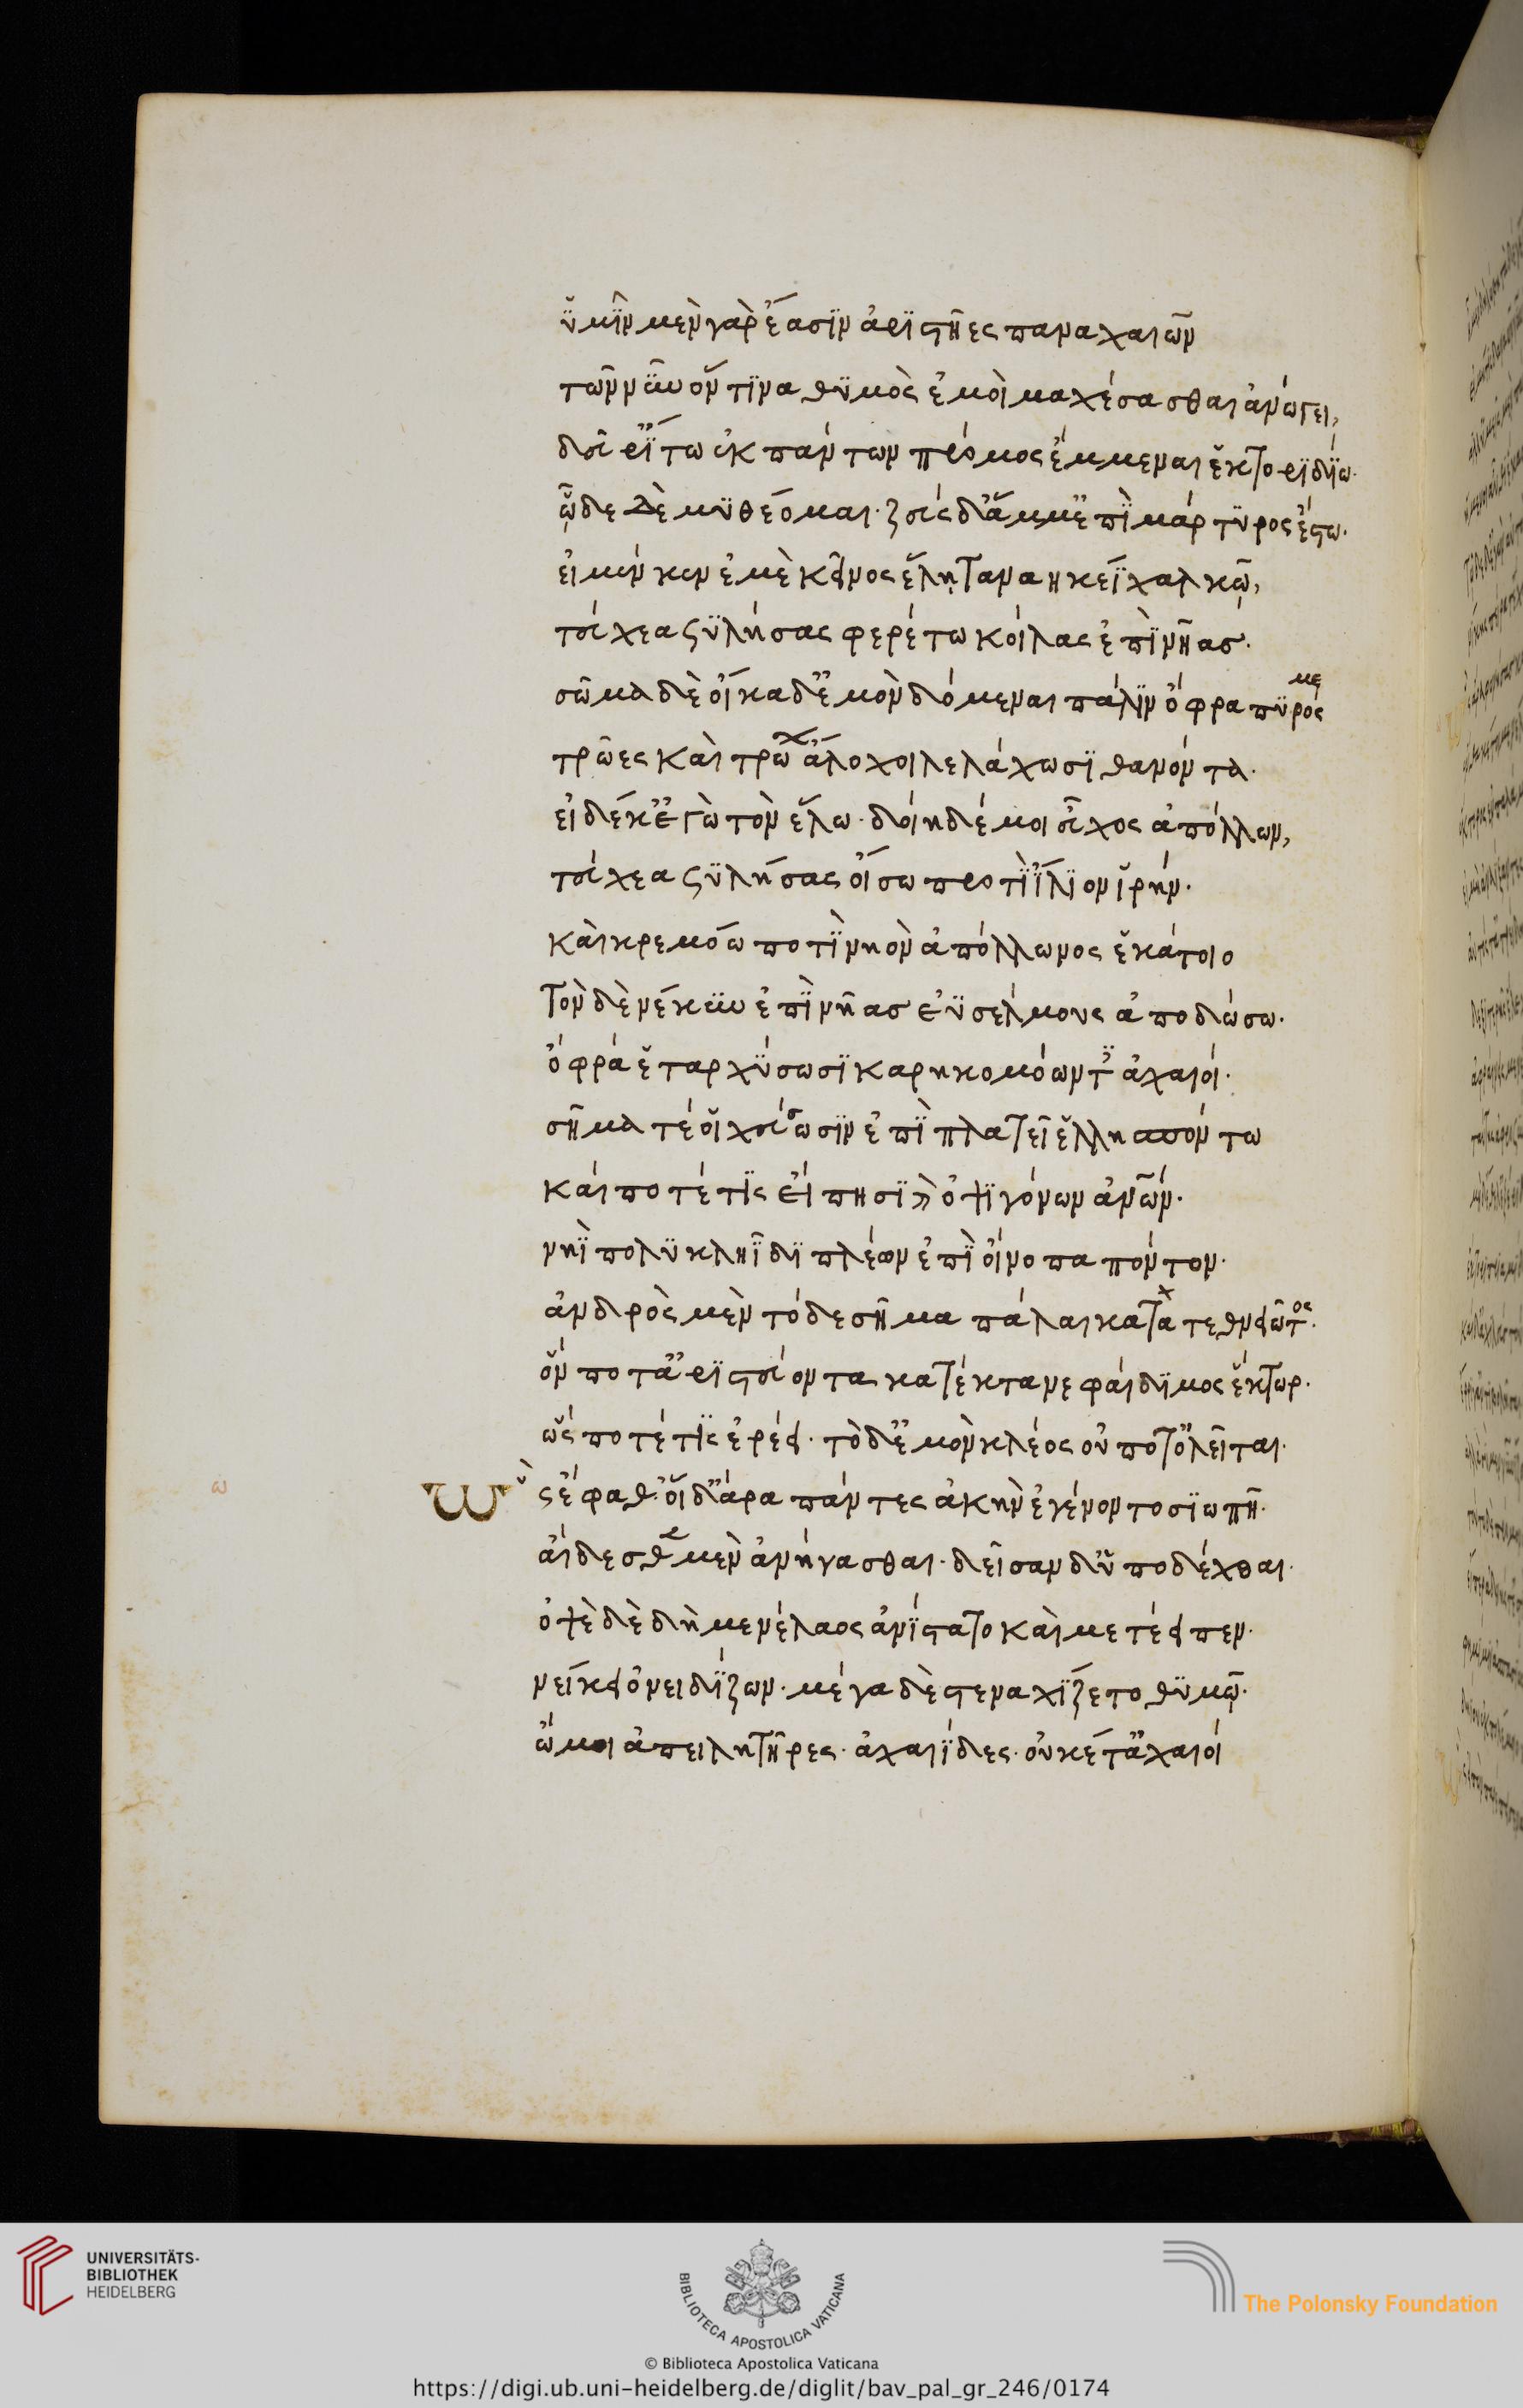 ὑμῖν μὲν γὰρ ἔασιν ἀριστῆες παναχαιῶν
τῶν νῦν ὅντινα θυμὸς ἐμοὶ μαχέσασθαι ἀνώγει,
δεῦρ' ἴτω ἐκ πάντων πρόμος ἔμμεναι ἕκτορι δίω.
ὧδε δὲ μυθέομαι. ζεὺς δ' ἄμμ' ἐπὶ μάρτυρος ἔστω.
εἰ μέν κεν ἐμὲ κεῖνος ἕλῃ ταναηκέϊ χαλκῷ,
τεύχεα συλήσας φερέτω κοίλας ἐπὶ νῆασ.
σῶμα δὲ οἴκαδ' ἐμὸν δόμεναι πάλιν ὄφρα πυρός με
τρῶες καὶ τρώων ἄλοχοι λελάχωσι θανόντα.
εἰ δέ κ' ἐγὼ τὸν ἕλω. δώη δέ μοι εὖχος ἀπόλλων,
τεύχεα συλήσας οἴσω προτὶ ἴλιον ἱρήν.
καὶ κρεμόω ποτὶ νηὸν ἀπόλλωνος ἑκάτοιο
τὸν δὲ νέκυν ἐπὶ νῆασ ἐϋσέλμους ἀποδώσω.
ὄφρά ἑ ταρχύσωσι καρηκομόωντ' ἀχαιοί.
σῆμα τέ οἱ χεύωσιν ἐπὶ πλατεῖ ἑλλησπόντω
καί ποτέ τις εἴπησι καὶ ὀψιγόνων ἀνῶν.
νηῒ πολυκληῗδι πλέων ἐπὶ οἴνοπα πόντον.
ἀνδρὸς μὲν τόδε σῆμα πάλαι κατατεθνειῶτος.
ὅν ποτ' ἀριστεύοντα κατέκτανε φαίδιμος ἕκτωρ.
ὥς ποτέ τις ἐρέει. τὸ δ' ἐμὸν κλέος οὔποτ' ὀλεῖται.
Ὣς ἔφαθ'. οἱ δ' ἄρα πάντες ἀκὴν ἐγένοντο σιωπῆ.
αἴδεσθεν μὲν ἀνήνασθαι. δεῖσαν δ' ὑποδέχθαι.
ὀψὲ δὲ δὴ μενέλαος ἀνίστατο καὶ μετέειπεν.
νείκει ὀνειδίζων. μέγα δὲ στεναχίζετο θυμῷ.
ὤ μοι ἀπειλητῆρες. ἀχαιίδες. οὐκέτ' ἀχαιοί
ω
UNIVERSITÄTS-
BIBLIOTHEK
HEIDELBERG
BIBLIOTECA APOSTOLICA VATICANA
The Polonsky Foundation
© Biblioteca Apostolica Vaticana
https://digi.ub.uni-heidelberg.de/diglit/bav_pal_gr_246/0174